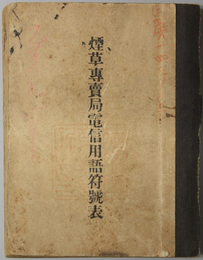 煙草專賣局電信用語符號表